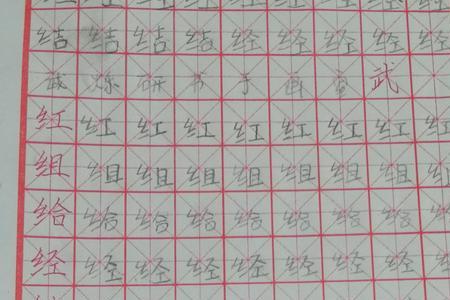 结 结 结 结 经 经 经 经 经
研 书 写 武
红 红 红 红 红 红 红 红 红 红
组 组 组 组 组 组 组 组 组 组
给 给 给 给 给 给 给 给 给 给
经 经 经 经 经 经 经 经 经 经